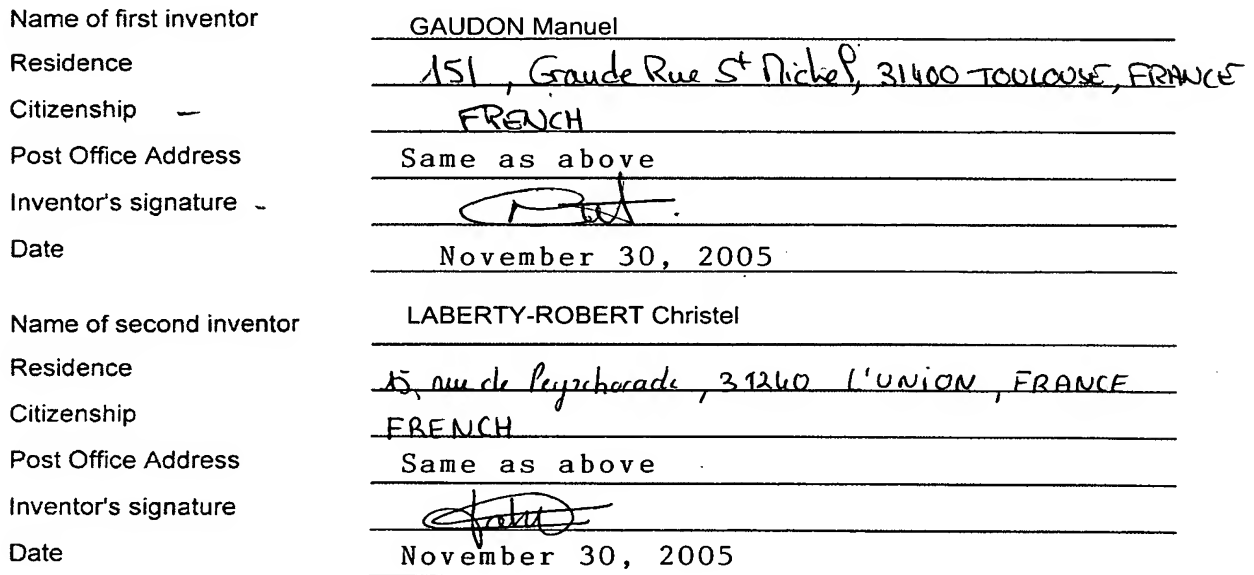 Name of first inventor GAUDON Manuel
Residence 151, Grande Rue St Michel, 31400 TOULOUSE, FRANCE
Citizenship FRENCH
Post Office Address Same as above
Inventor's signature
Date November 30, 2005
Name of second inventor LABERTY-ROBERT Christel
Residence 15, rue de Peyrehorade, 31240 L'UNION, FRANCE
Citizenship FRENCH
Post Office Address Same as above
Inventor's signature
Date November 30, 2005